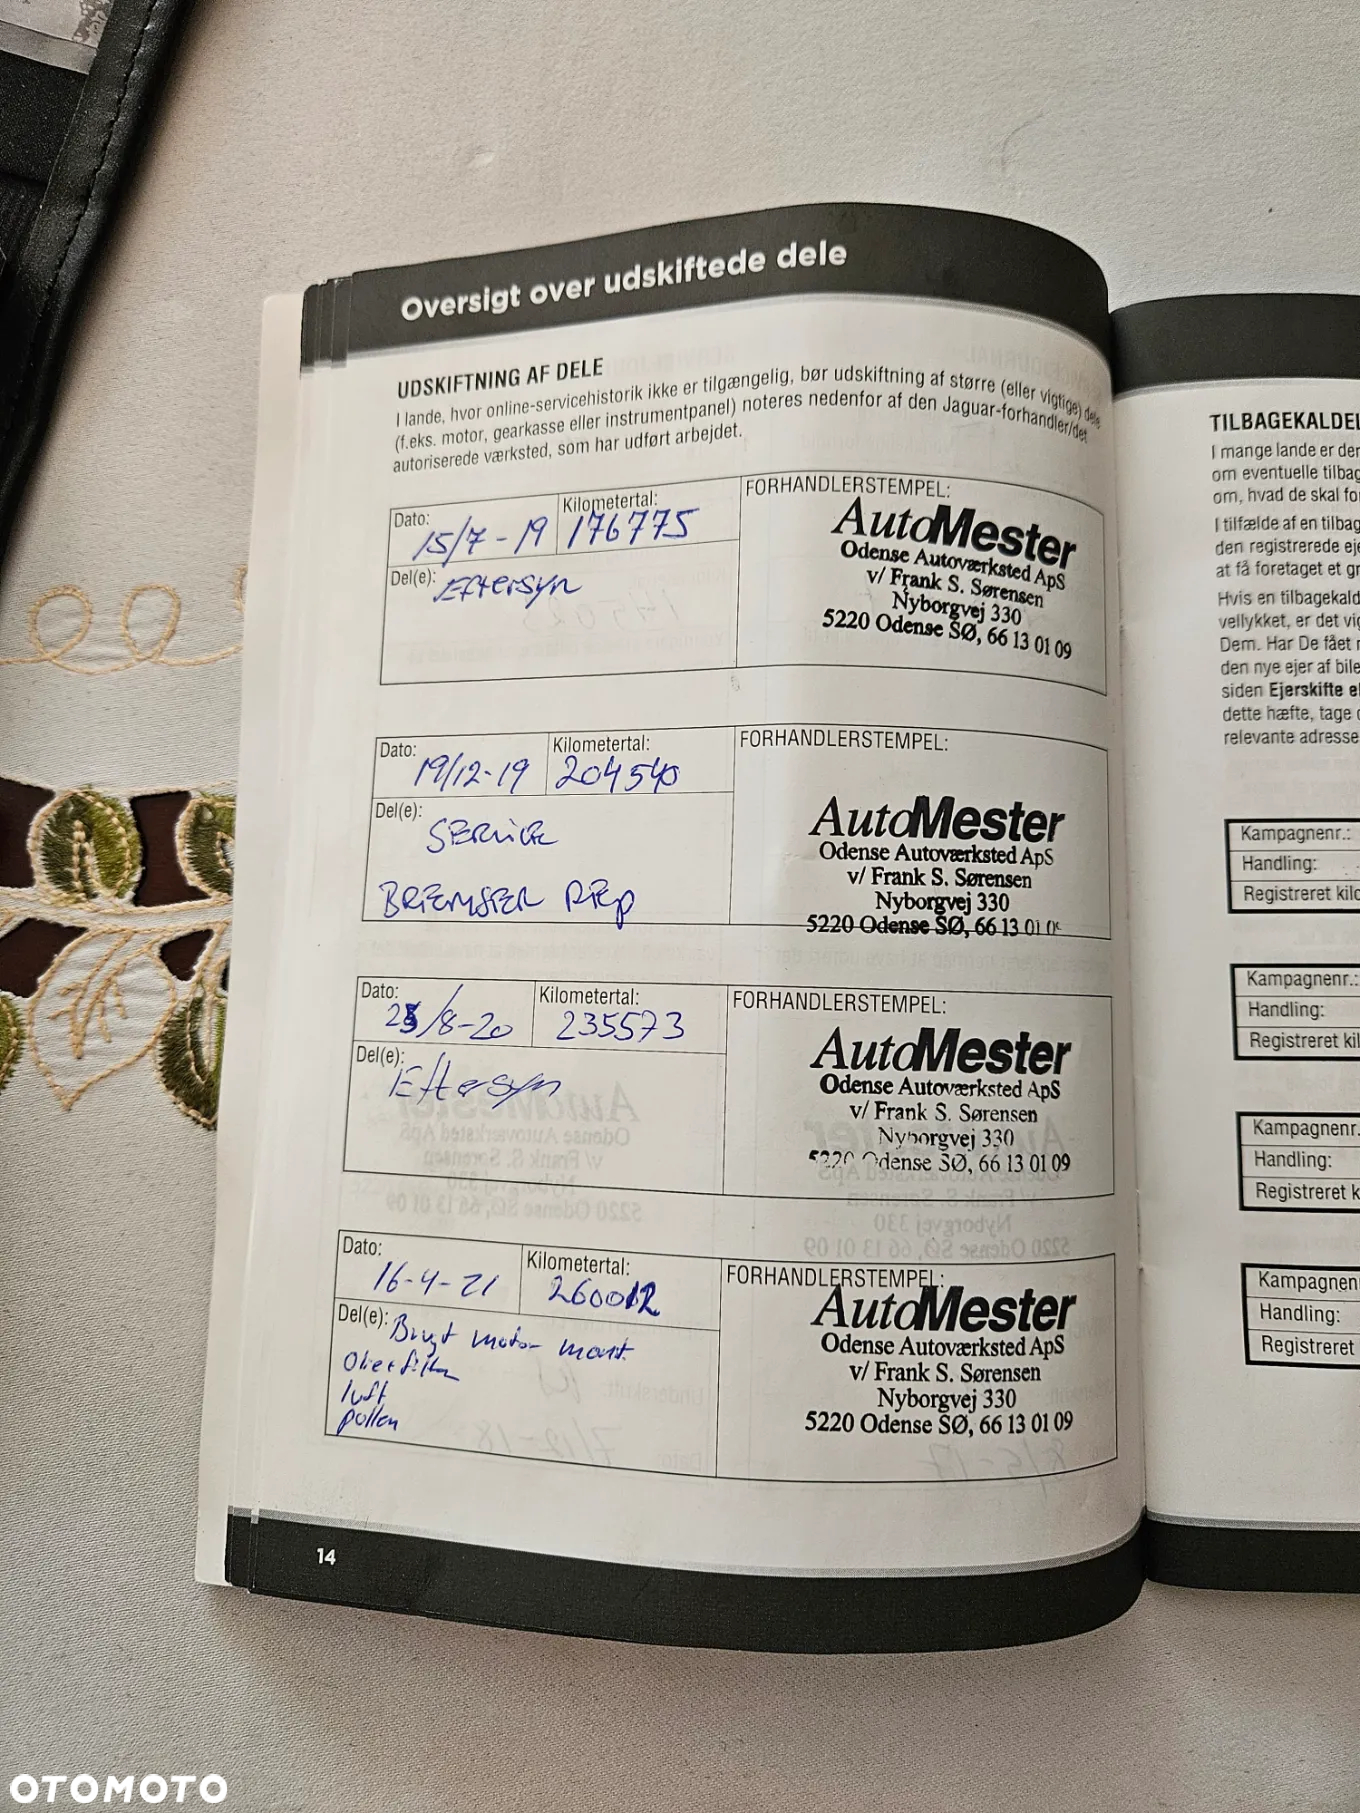 Oversigt over udskiftede dele
UDSKIFTNING AF DELE
I lande, hvor online-servicehistorik ikke er tilgængelig, bør udskiftning af større (eller vigtige) dele
(f.eks. motor, gearkasse eller instrumentpanel) noteres nedenfor af den Jaguar-forhandler/det
autoriserede værksted, som har udført arbejdet.
Dato: 15/7-19
Kilometertal: 176775
Del(e): Eftersyn
FORHANDLERSTEMPEL:
AutoMester
Odense Autoværksted ApS
v/ Frank S. Sørensen
Nyborgvej 330
5220 Odense SØ, 66 13 01 09
Dato: 19/12-19
Kilometertal: 204540
Del(e):
SERVICE
BREMSER REP
FORHANDLERSTEMPEL:
AutoMester
Odense Autoværksted ApS
v/ Frank S. Sørensen
Nyborgvej 330
5220 Odense SØ, 66 13 01 0
Dato: /8-20
Kilometertal: 235573
Del(e): Eftersyn
FORHANDLERSTEMPEL:
AutoMester
Odense Autoværksted ApS
v/ Frank S. Sørensen
Nyborgvej 330
5220 Odense SØ, 66 13 01 09
Dato: 16-4-21
Kilometertal: 260012
Del(e): motor
luft
pollen
FORHANDLERSTEMPEL:
AutoMester
Odense Autoværksted ApS
v/ Frank S. Sørensen
Nyborgvej 330
5220 Odense SØ, 66 13 01 09
14
TILBAGEKALDEL
I mange lande er der
om eventuelle tilbag
om, hvad de skal for
I tilfælde af en tilbag
den registrerede eje
at få foretaget et gr
Hvis en tilbagekald
vellykket, er det vig
Dem. Har De fået
den nye ejer af bile
siden Ejerskifte el
dette hæfte, tage
relevante adresse
Kampagnenr.:
Handling:
Registreret kilo
Kampagnenr.:
Handling:
Registreret kil
Kampagnenr.
Handling:
Registreret k
Kampagnen
Handling:
Registreret
OTOMOTO